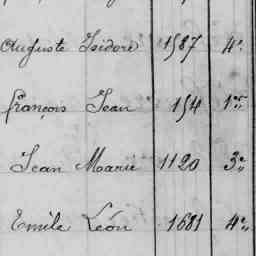 Auguste Isidore 1587 4e
François Jean 154 1er
Jean Marie 1120 3e
Emile Léon 1681 4e